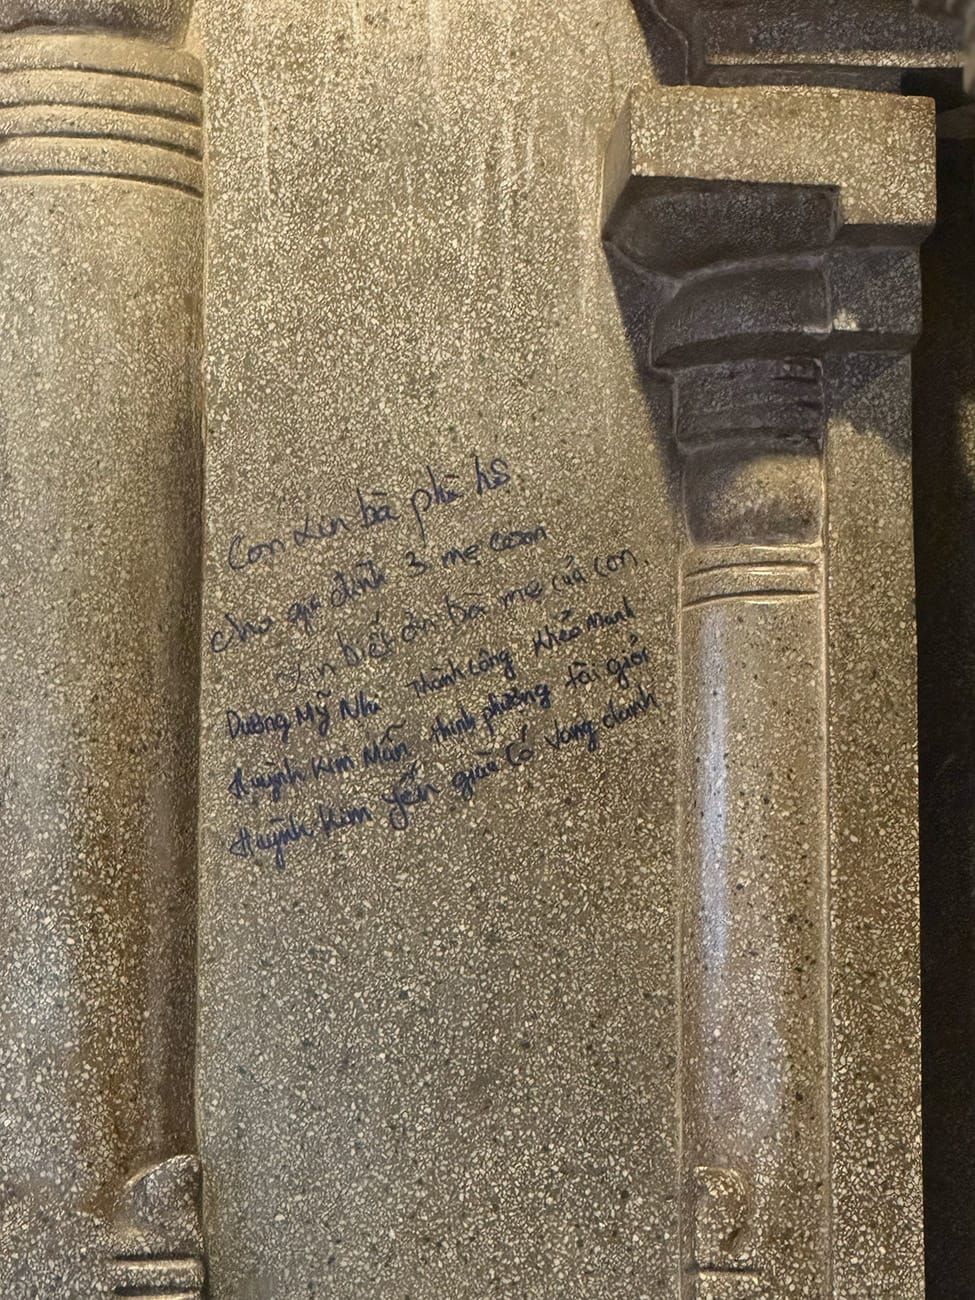 Con xin bà phù hộ
cho gia đình 3 mẹ con
ơn biết ơn bà mẹ của con.
Dương Mỹ Nhi Thành công Khỏe Mạnh
Huỳnh Kim Mẫn thịnh phường tài giỏi
Huỳnh Kim Yến giàu có vang danh